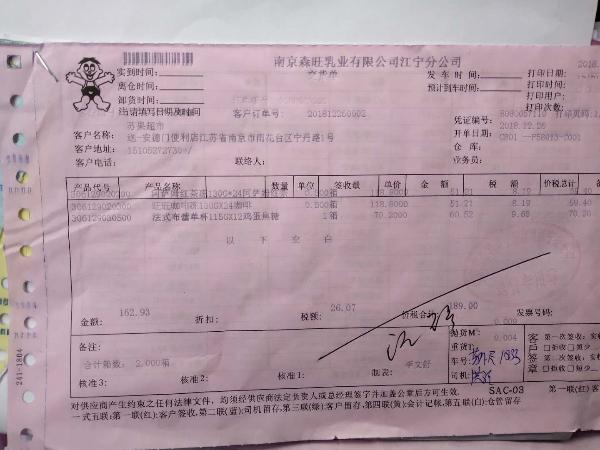 南京森旺乳业有限公司江宁分公司
交货单
实到时间:
离仓时间:
卸货时间:
出请填写日期及时间
发 车 时 间:
预计到车时间:
打印日期:
打印时间:
打印用户:
打印次数:
客户订单号: 201812260002
凭证编号: 8080057110
打印页码:1
苏果超市
开单日期: 2018.12.26
客户名称: 送-安德门便利店江苏省南京市雨花台区宁丹路1号
仓 库:
客户地址: 15105272730*/
客户电话:
联络人:
业务员:
产品代号 产品名称 数量 单位 签收量 单价 金 额 税 额 价税总计
118.8000 51.21 8.19 59.40
306129020300 旺旺咖啡冻150GX24咖啡 0.500箱 118.8000 51.21 8.19 59.40
306129030500 法式布蕾单杯115GX12鸡蛋焦糖 1箱 70.2000 60.52 9.68 70.20
以 下 空 白
金额: 162.93 折扣: 税额: 26.07 价税合计: 189.00 发票号码:
0.009
备注:
抛货M³
0.004
合计箱数: 2.000箱
重货T:
车号:
司机:
核准3: 核准2: 核准1: 制表: 李文舒
客户签章
第一次签收: 实收
拒收 短少
第二次签收: 实收
拒收 短少
SAC-03
第一联(红):客户
对供应商产生约束之任何法律文件,均须经供应商法定负责人或总经理签字并加盖公章后方可生效。
一式五联:第一联(红):客户签收,第二联(蓝):司机留存,第三联(绿):客户留存,第四联(黄):会计记帐,第五联(白):仓管留存
241-1804